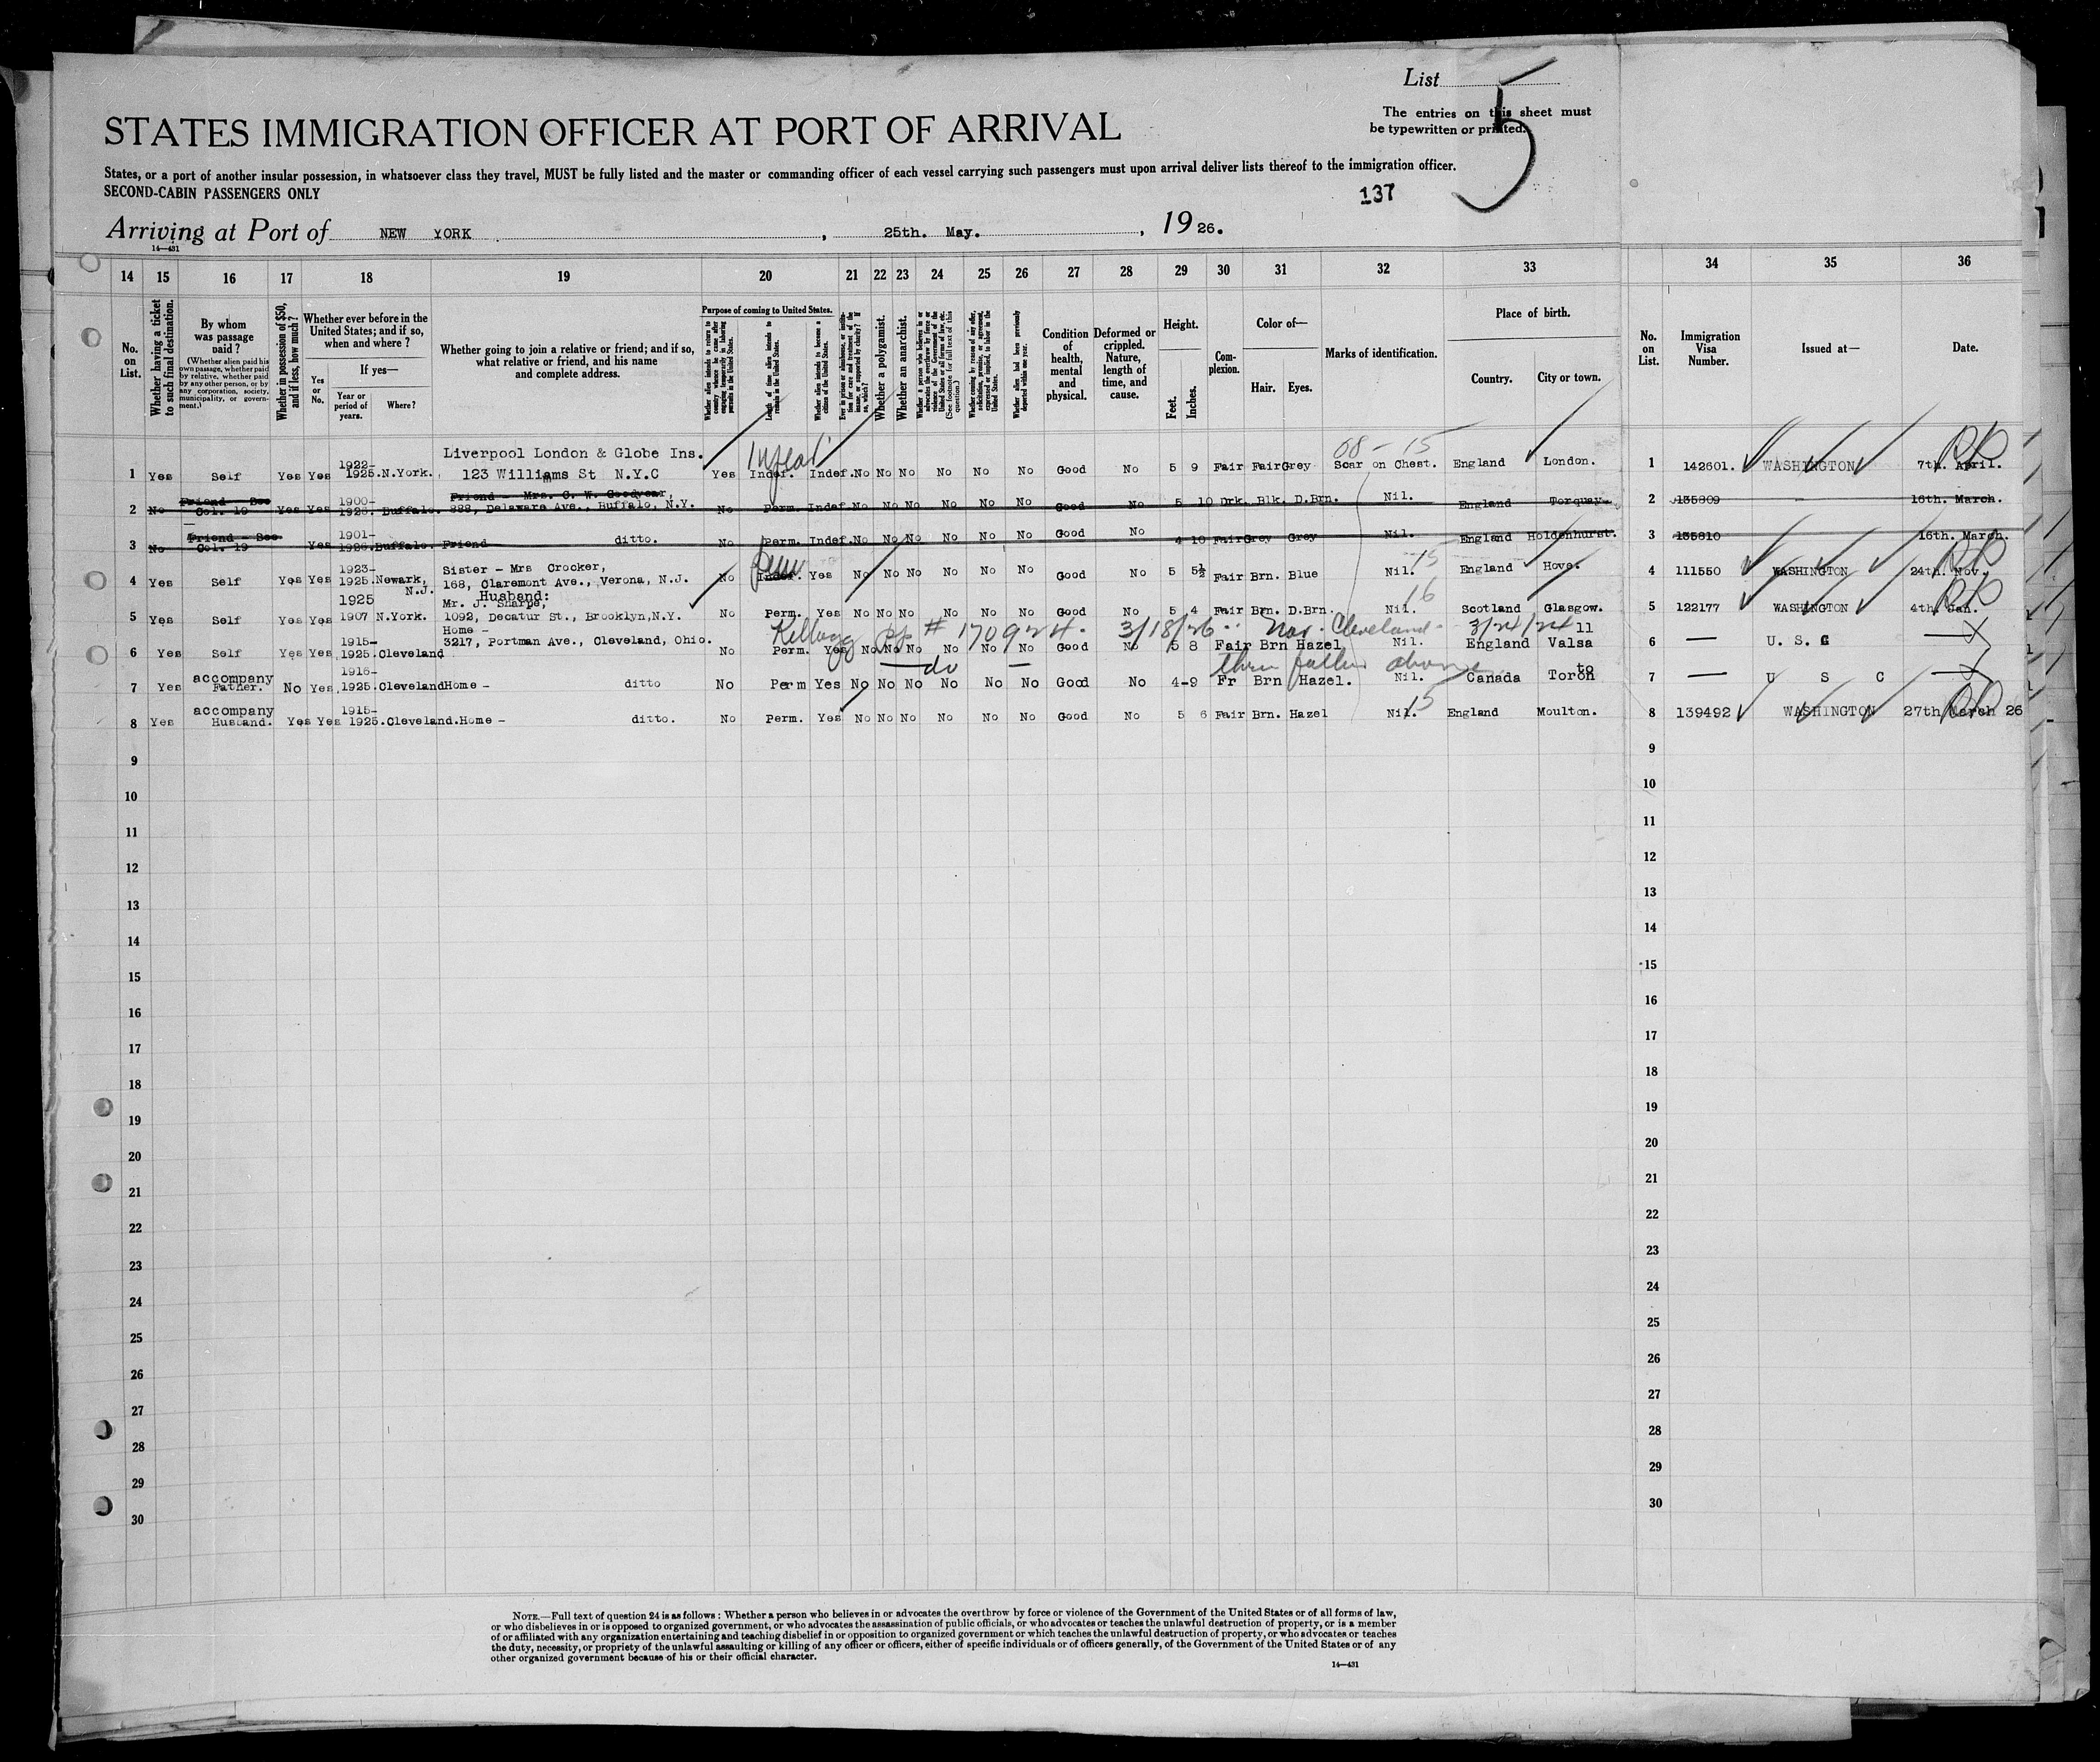 List 5
The entries on this sheet must
be typewritten or printed.
STATES IMMIGRATION OFFICER AT PORT OF ARRIVAL
States, or a port of another insular possession, in whatsoever class they travel, MUST be fully listed and the master or commanding officer of each vessel carrying such passengers must upon arrival deliver lists thereof to the immigration officer.
SECOND-CABIN PASSENGERS ONLY
137
Arriving at Port of NEW YORK, 25th. May., 1926.
14—431
14 15 16 17 18 19 20 21 22 23 24 25 26 27 28 29 30 31 32 33 34 35 36
No. on List.
Whether having a ticket to such final destination.
By whom was passage paid?
(Whether alien paid his own passage, whether paid by relative, whether paid by any other person, or by any corporation, society, municipality, or government.)
Whether in possession of $50, and if less, how much?
Whether ever before in the United States; and if so, when and where?
Yes or No.
If yes—
Year or period of years.
Where?
Whether going to join a relative or friend; and if so, what relative or friend, and his name and complete address.
Purpose of coming to United States.
Whether alien intends to return to country whence he came after engaging temporarily in laboring pursuits in the United States.
Length of time alien intends to remain in the United States.
Whether alien intends to become a citizen of the United States.
Whether a polygamist.
Whether an anarchist.
Condition of health, mental and physical.
Deformed or crippled. Nature, length of time, and cause.
Height.
Feet.
Inches.
Complexion.
Color of—
Hair. Eyes.
Marks of identification.
Place of birth.
Country. City or town.
No. on List.
Immigration Visa Number.
Issued at—
Date.
Liverpool London & Globe Ins. 1 year 08 - 15
1 Yes Self Yes Yes 1922-1925. N.York. 123 Williams St N.Y.C Yes Indef. Indef. No No No No No No Good No 5 9 Fair Fair Grey Scar on Chest. England London. 1 142601. WASHINGTON 7th. April.
Friend - See Friend - Mrs. C. W. Goodyear,
2 No Col. 19 Yes Yes 1900-1926. Buffalo. 888, Delaware Ave., Buffalo, N.Y. No Perm. Indef. No No No No No No Good No 5 10 Drk. Blk. D.Brn. Nil. England Torquay. 2 135809 16th. March.
Friend - See
3 No Col. 19 Yes 1901-1926. Buffalo. Friend ditto. No Perm. Indef. No No No No No No Good No 4 10 Fair Grey Grey Nil. England Holdenhurst. 3 135810 16th. March.
Sister - Mrs Crocker, Perm 15
4 Yes Self Yes Yes 1923-1925. Newark, N.J. 168, Claremont Ave., Verona, N.J. No Indef. Yes No No No No No No Good No 5 5½ Fair Brn. Blue Nil. England Hove. 4 111550 WASHINGTON 24th. Nov.
Husband:
Mr. J. Sharpe, 16
5 Yes Self Yes Yes 1925 1907 N.York. 1092, Decatur St., Brooklyn, N.Y. No Perm. Yes No No No No No No Good No 5 4 Fair Brn. D.Brn. Nil. Scotland Glasgow. 5 122177 WASHINGTON 4th. Jan.
Kellogg pp # 170924. 3/18/26 Nat. Cleveland 3/24/24
Home -
6 Yes Self Yes Yes 1915-1925. Cleveland 3217, Portman Ave., Cleveland, Ohio. No Perm. Yes No No No No No No Good No 5 8 Fair Brn Hazel Nil. England Valsall 6 — U. S. C —
— do — thru father above
7 Yes accompany Father. No Yes 1915-1925. Cleveland Home - ditto No Perm Yes No No No No No No Good No 4-9 Fr Brn Hazel. Nil. Canada Toronto 7 — U S C —
15
8 Yes accompany Husband. Yes Yes 1915-1925. Cleveland. Home - ditto. No Perm. Yes No No No No No No Good No 5 6 Fair Brn. Hazel Nil. England Moulton. 8 139492 WASHINGTON 27th March 26
9 9
10 10
11 11
12 12
13 13
14 14
15 15
16 16
17 17
18 18
19 19
20 20
21 21
22 22
23 23
24 24
25 25
26 26
27 27
28 28
29 29
30 30
NOTE.—Full text of question 24 is as follows: Whether a person who believes in or advocates the overthrow by force or violence of the Government of the United States or of all forms of law,
or who disbelieves in or is opposed to organized government, or who advocates the assassination of public officials, or who advocates or teaches the unlawful destruction of property, or is a member
of or affiliated with any organization entertaining and teaching disbelief in or opposition to organized government or which teaches the unlawful destruction of property, or who advocates or teaches
the duty, necessity, or propriety of the unlawful assaulting or killing of any officer or officers, either of specific individuals or of officers generally, of the Government of the United States or of any
other organized government because of his or their official character.
14—431